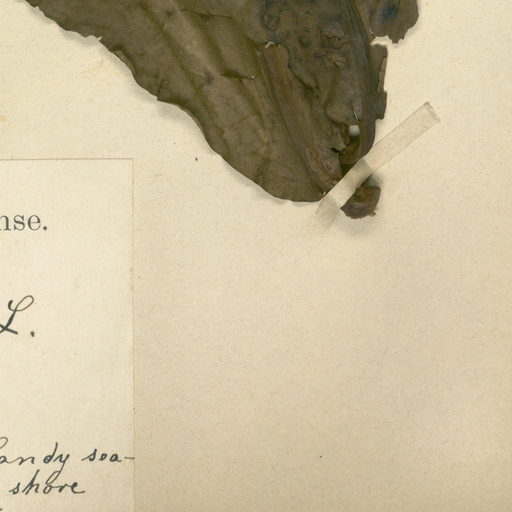 nse.
L.
Sandy sea-
shore